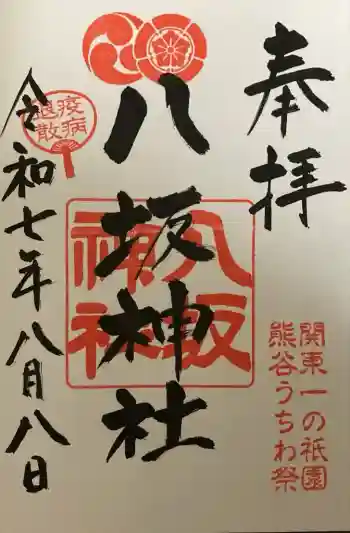 奉拝
八坂神社
八坂神社
関東一の祇園
熊谷うちわ祭
疫病
退散
令和七年八月八日